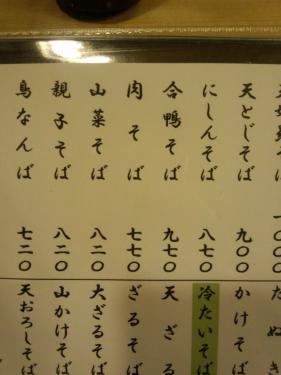 天とじそば 九〇〇
にしんそば 八七〇
合鴨そば 九七〇
肉そば 七七〇
山菜そば 八二〇
親子そば 八二〇
鳥なんば 七二〇
たぬき
かけそば
冷たいそば
天ざる
ざるそば
大ざるそば
山かけそば
天おろしそば